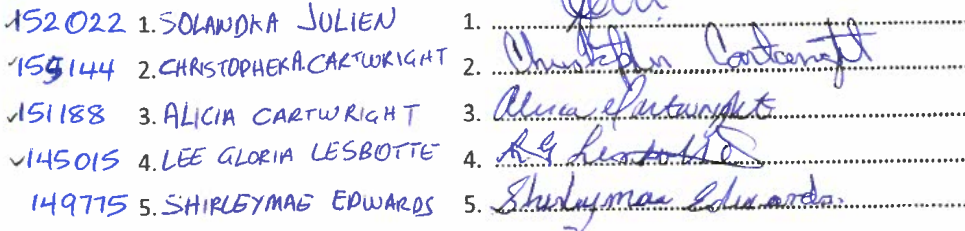 152022 1. SOLANDKA JULIEN 1.
155144 2. CHRISTOPHER A. CARTWRIGHT 2. Christopher Cartwright
151188 3. ALICIA CARTWRIGHT 3. Alicia Cartwright
145015 4. LEE GLORIA LESBOTTE 4.
149775 5. SHIRLEYMAE EDWARDS 5. Shirleymae Edwards.